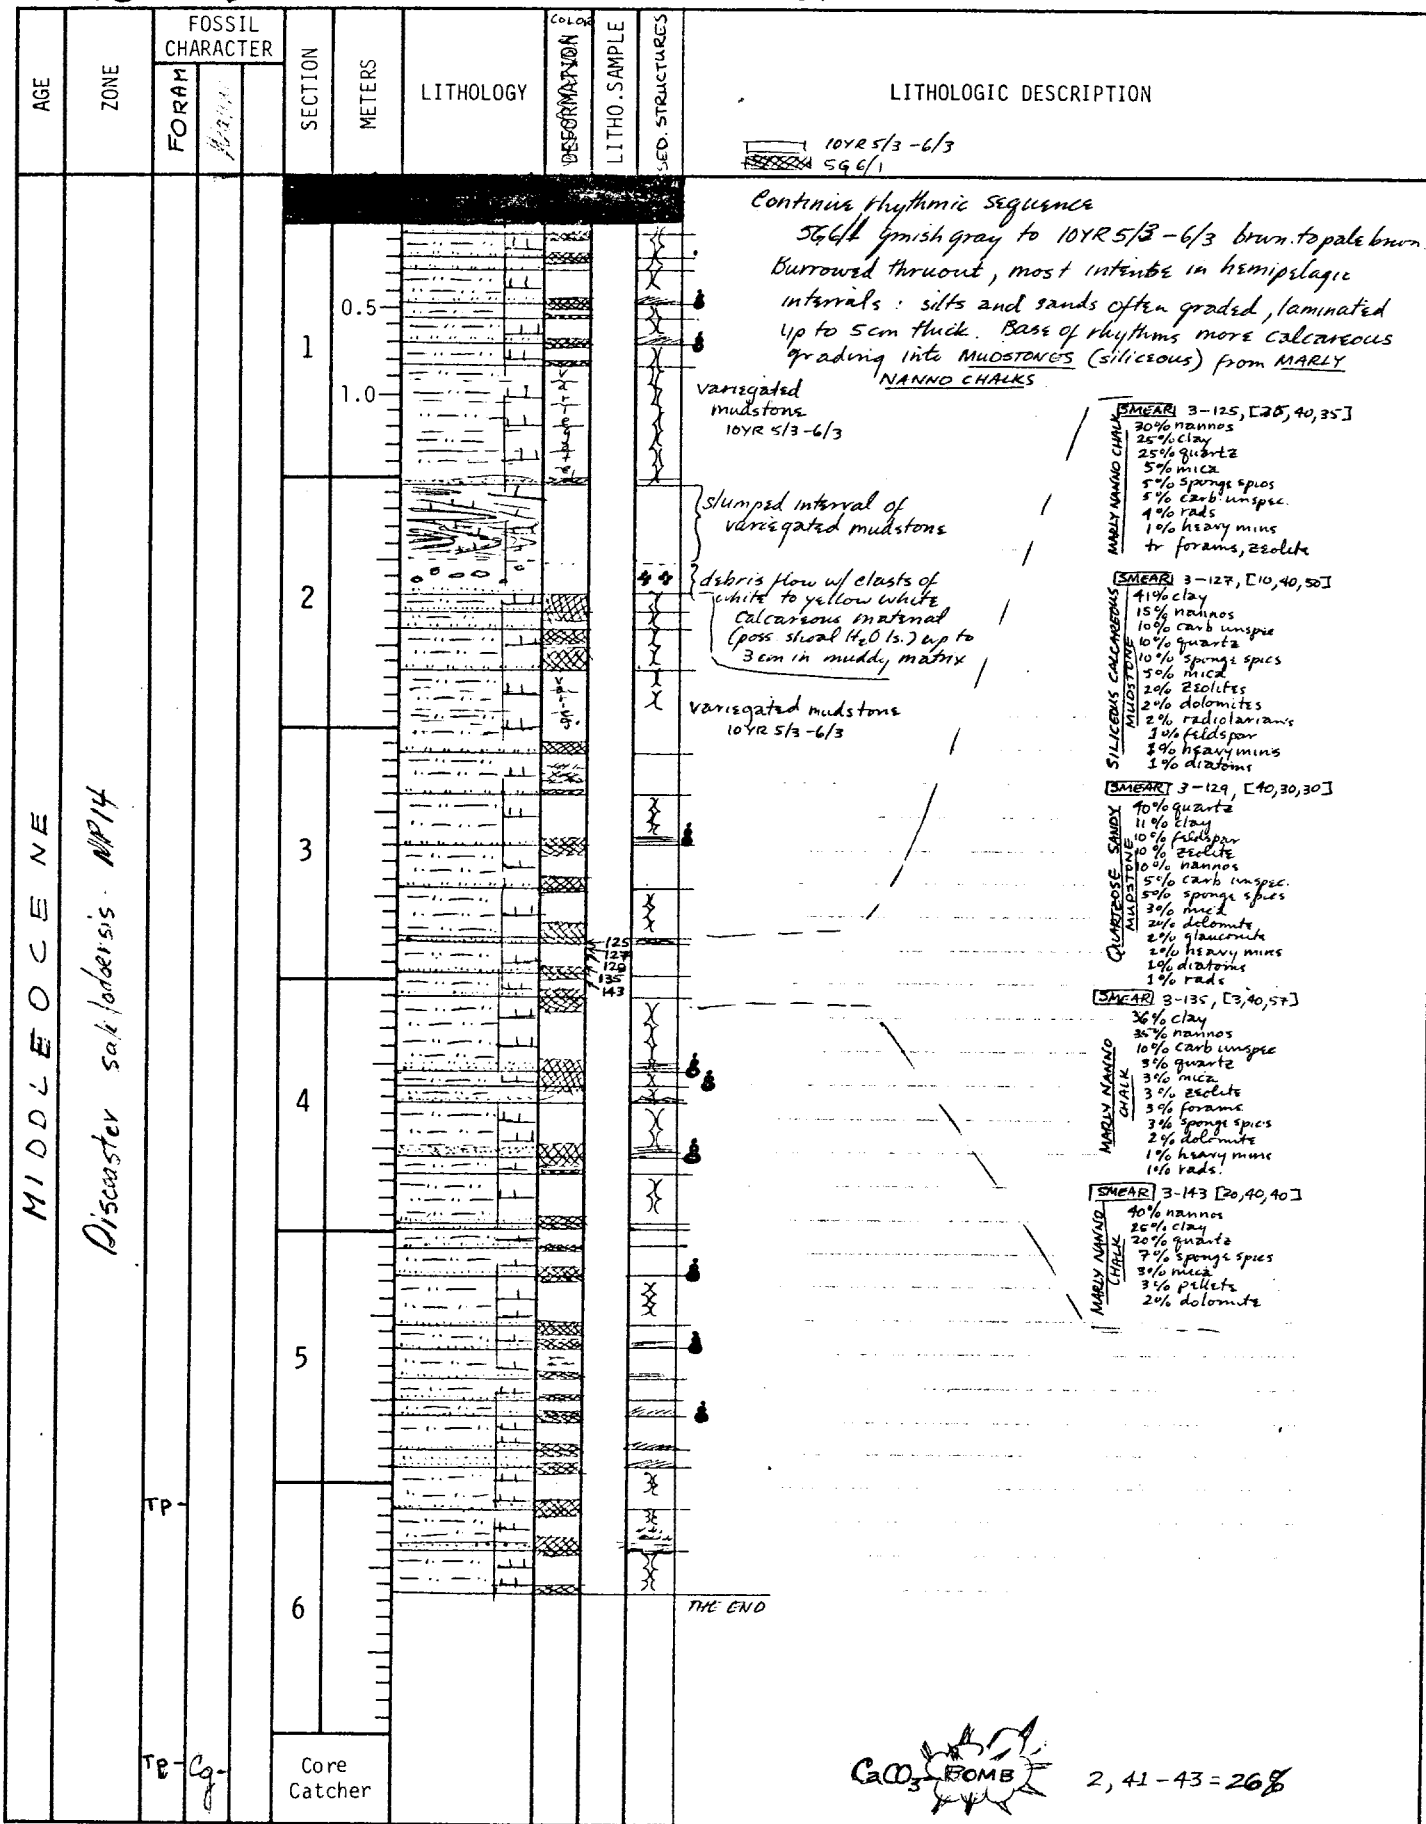 AGE
ZONE
FOSSIL
CHARACTER
FORAM
SECTION
METERS
LITHOLOGY
COLOR
DEFORMATION
LITHO.SAMPLE
SED. STRUCTURES
LITHOLOGIC DESCRIPTION
10YR 5/3 - 6/3
5G 6/1
Continue rhythmic sequence
5G6/1 grnish gray to 10YR 5/3 - 6/3 brwn. to pale brwn.
Burrowed thruout, most intense in hemipelagic
intervals : silts and sands often graded, laminated
up to 5cm thick. Base of rhythms more calcareous
grading into MUDSTONES (siliceous) from MARLY
NANNO CHALKS
0.5
1
1.0
variegated
mudstone
10YR 5/3 - 6/3
slumped interval of
variegated mudstone
2
debris flow w/ clasts of
white to yellow white
calcareous material
(poss. shoal H2O ls.) up to
3 cm in muddy matrix
variegated mudstone
10YR 5/3 - 6/3
MIDDLE EOCENE
Discoaster NP14
3
125
127
129
135
143
4
5
TP
6
THE END
TP
Cg
Core
Catcher
MARLY NANNO CHALK
SMEAR 3-125, [25, 40, 35]
30% nannos
25% clay
25% quartz
5% mica
5% sponge spics
5% carb. unspec.
4% rads
1% heavy mins
tr forams, zeolite
SILICEOUS CALCAREOUS
MUDSTONE
SMEAR 3-127, [10, 40, 50]
41% clay
15% nannos
10% carb unspec
10% quartz
10% sponge spics
5% mica
2% zeolites
2% dolomites
2% radiolarians
1% feldspar
1% heavy mins
1% diatoms
QUARTZOSE SANDY
MUDSTONE
SMEAR 3-129, [40, 30, 30]
40% quartz
11% clay
10% feldspar
10% zeolite
10% nannos
5% carb unspec.
5% sponge spics
3% mica
2% dolomite
2% glauconite
2% heavy mins
1% diatoms
1% rads
MARLY NANNO
CHALK
SMEAR 3-135, [3, 40, 57]
36% clay
35% nannos
10% carb unspec
3% quartz
3% mica
3% zeolite
3% forams
3% sponge spics
2% dolomite
1% heavy mins
1% rads.
MARLY NANNO
CHALK
SMEAR 3-143 [20, 40, 40]
40% nannos
25% clay
20% quartz
7% sponge spics
3% mica
3% pellets
2% dolomite
CaCO3 BOMB 2, 41-43 = 26%